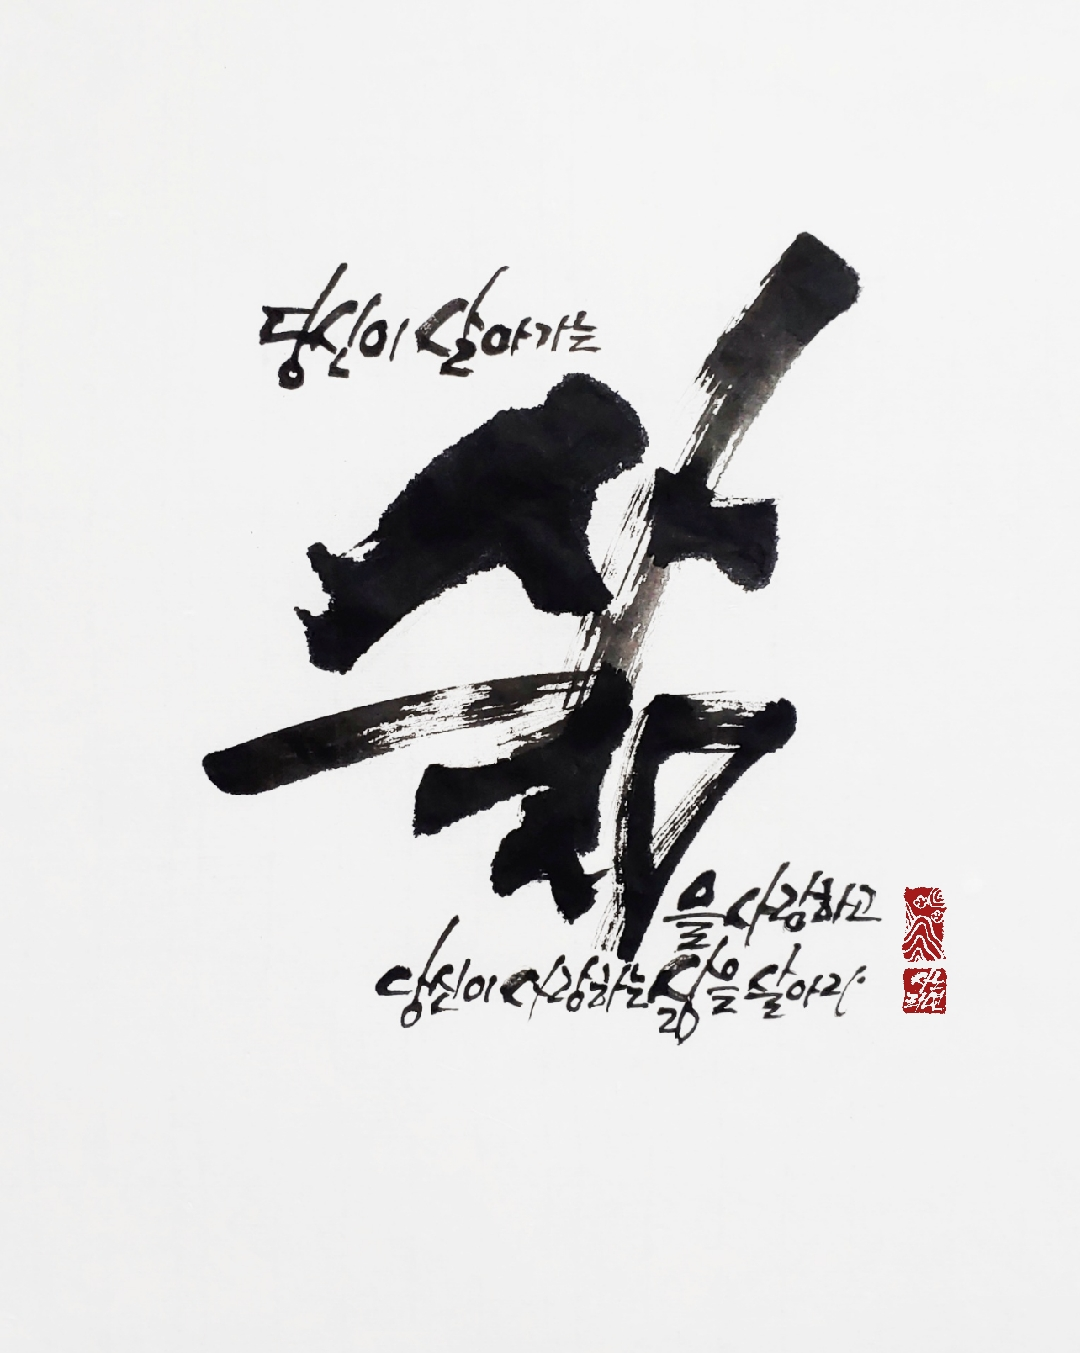 당신이 살아가는
삶
을 사랑하고
당신이 사랑하는 삶을 살아라